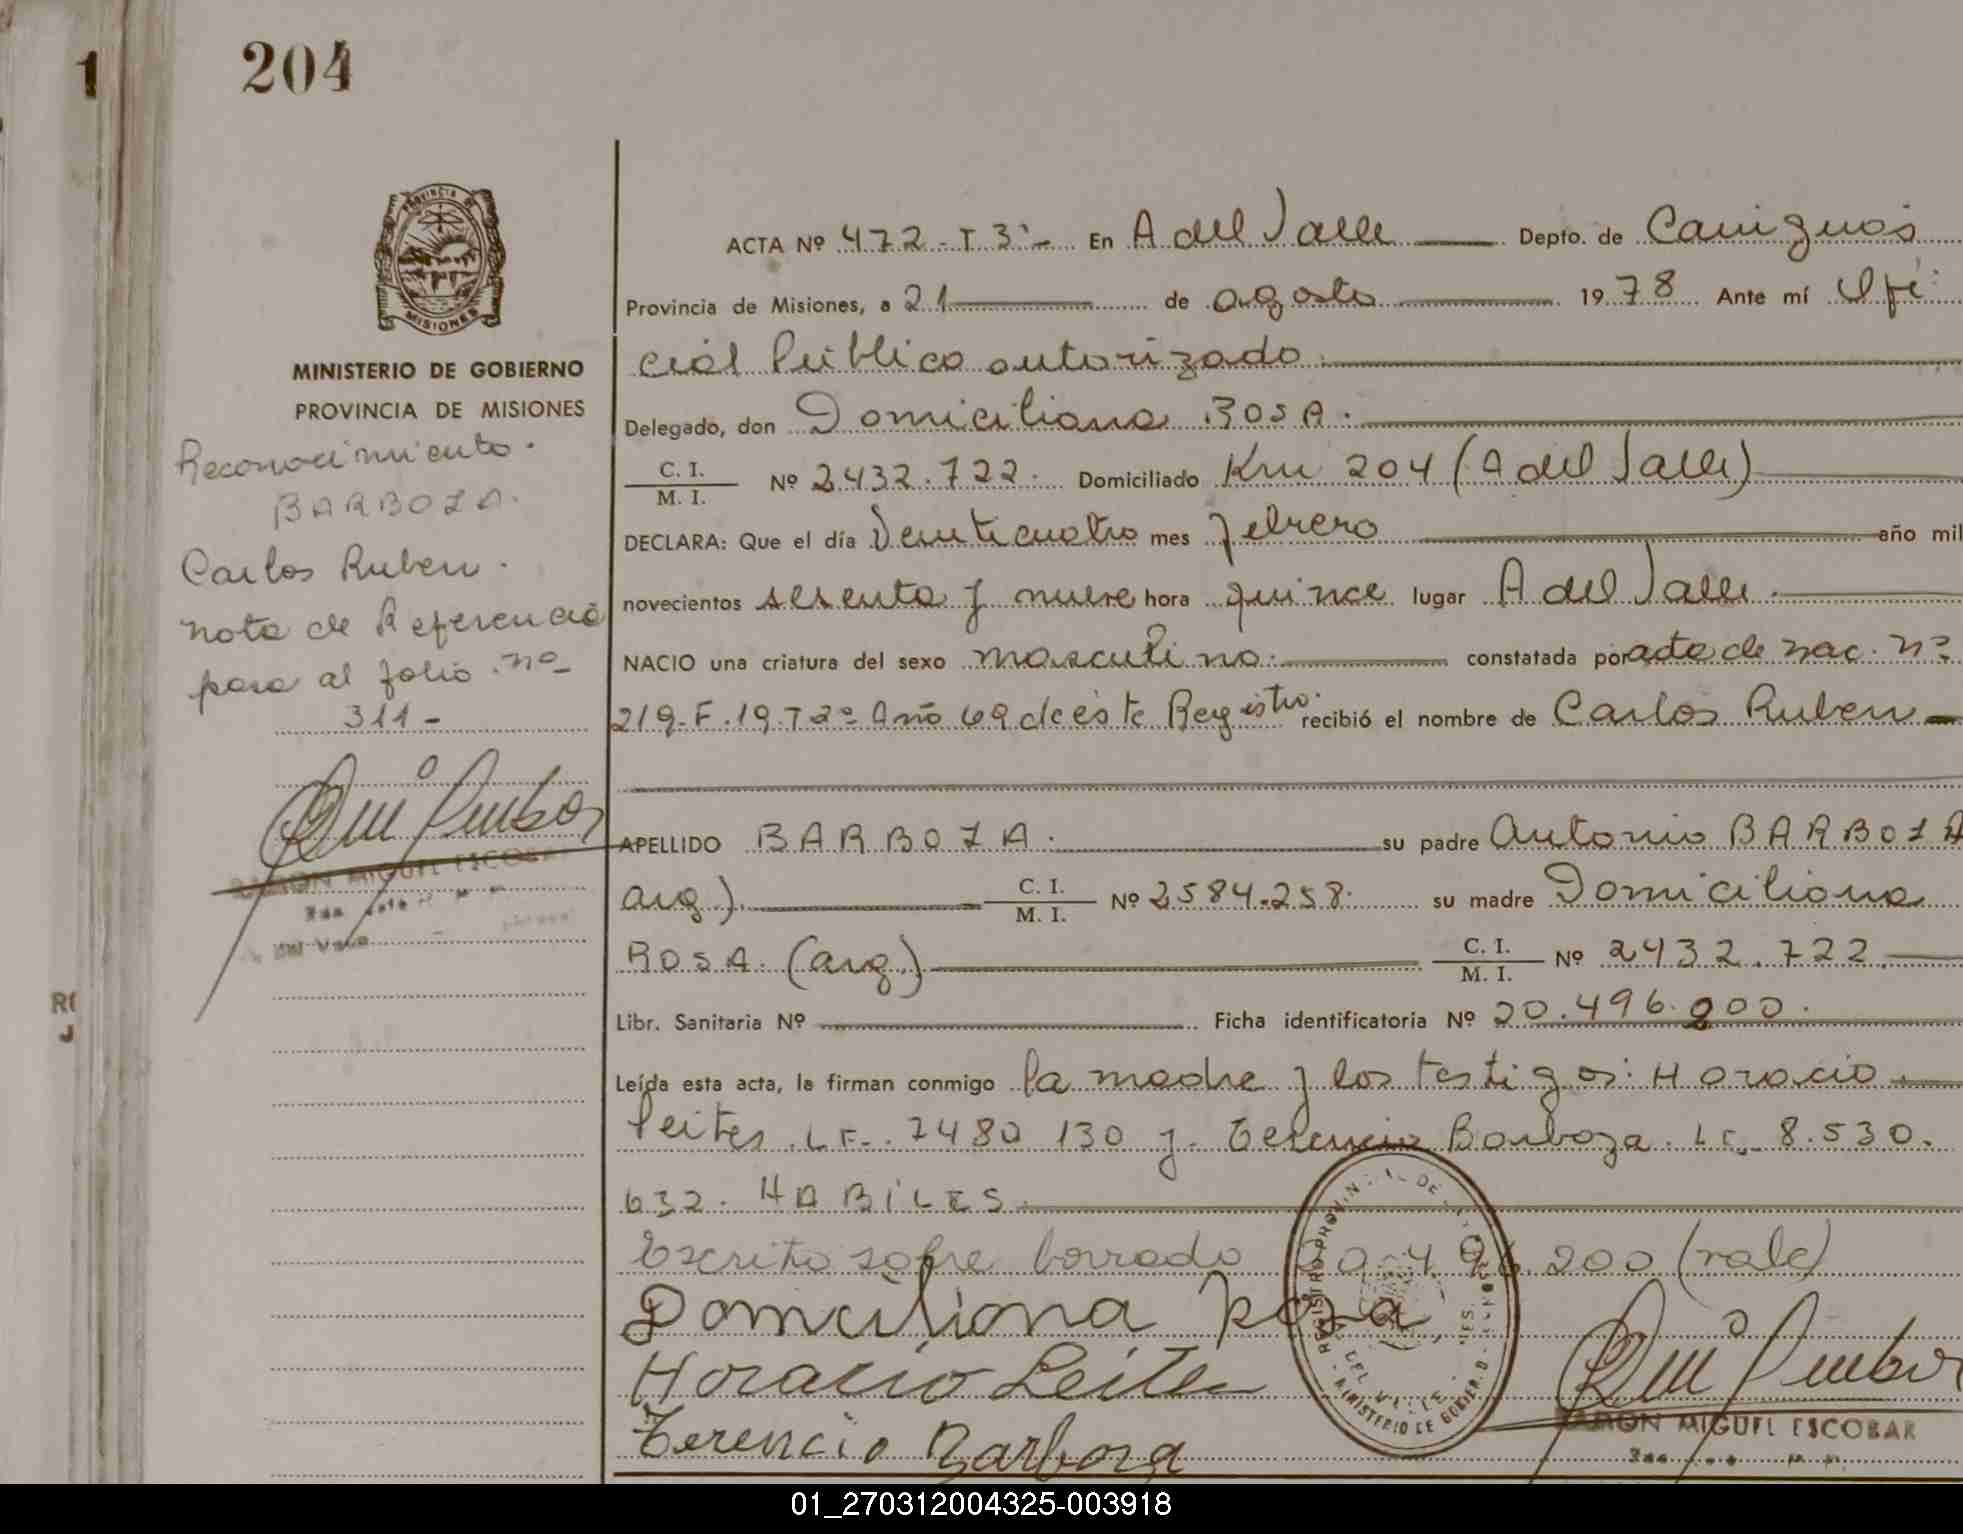 1
204
PROVINCIA DE
MISIONES
MINISTERIO DE GOBIERNO
PROVINCIA DE MISIONES
Reconocimiento.
BARBOZA.
Carlos Ruben.
nota de Referencia
pasa al folio. nº
311-
RAMON MIGUEL ESCOBAR
ACTA Nº 472-T 3º- En A del Valle Depto. de Cainguás
Provincia de Misiones, a 21 de agosto 1978 Ante mí Ofi
cial Público autorizado.
Delegado, don Domiciliana ROSA.
C. I. / M. I. Nº 2432.722. Domiciliado Km 204 (A del Valle)
DECLARA: Que el día Veinticuatro mes febrero año mil
novecientos sesenta y nueve hora quince lugar A del Valle.
NACIO una criatura del sexo masculino. constatada por acta de nac. nº
219-F.19.T 2º Año 69 de éste Registro. recibió el nombre de Carlos Ruben
APELLIDO BARBOZA. su padre Antonio BARBOZA
arg.). C. I. / M. I. Nº 2584.258. su madre Domiciliana
ROSA. (arg.) C. I. / M. I. Nº 2432.722.
Libr. Sanitaria Nº Ficha identificatoria Nº 20.496.200.
Leída esta acta, la firman conmigo la madre y los testigos: Horacio
Leites. L.E. 7480 130 y. Terencio Barboza. L.E. 8.530.
632. HABILES.
Escrito sobre borrado 20.496.200 (vale)
Domiciliana Rosa
Horacio Leites
Terencio Barboza
MINISTERIO DE GOBIERNO
RAMON MIGUEL ESCOBAR
01_270312004325-003918